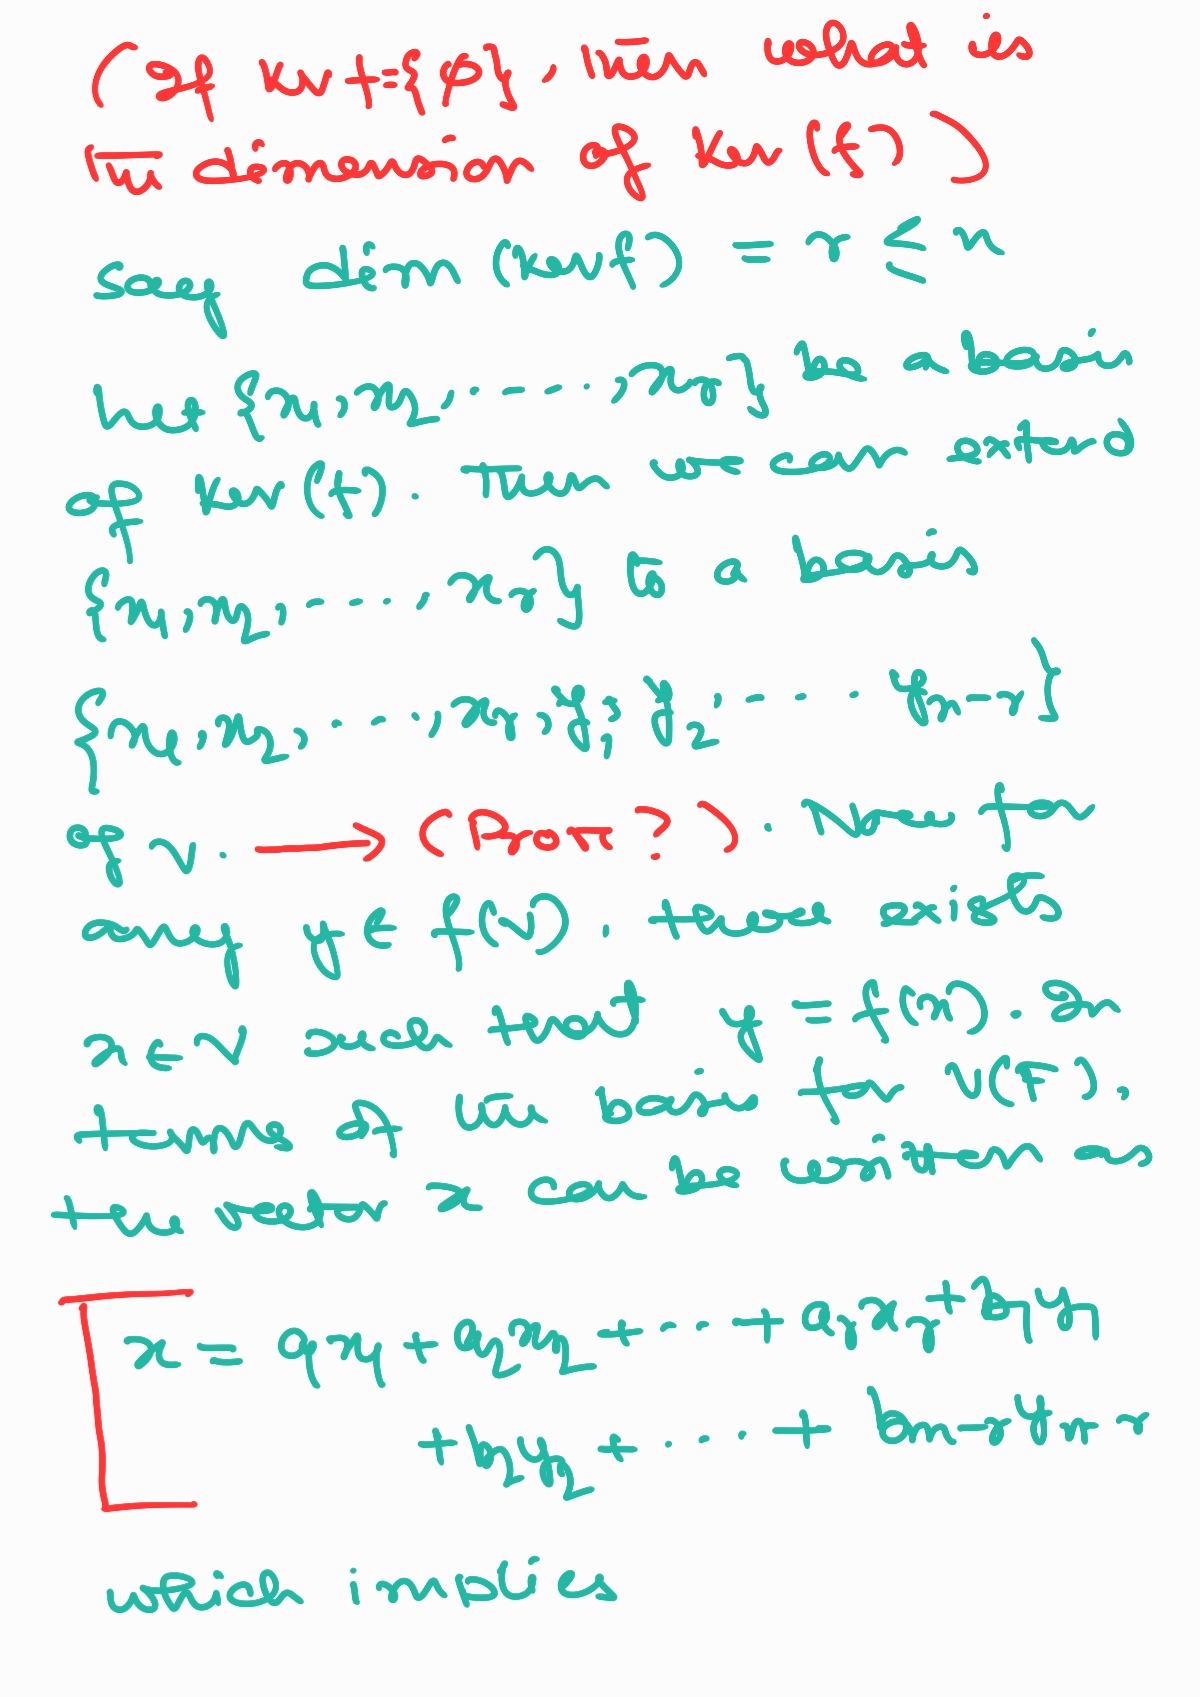 (If ker f={φ}, then what is
the dimension of Ker(f))
say dim (kerf) = r ≤ n
Let {x1, x2, ....., xr} be a basis
of Ker(f). Then we can extend
{x1, x2, ....., xr} to a basis
{x1, x2, ...., xr, y1, y2, .... yn-r}
of V. → (Proof?). Now for
any y ∈ f(V), there exists
x ∈ V such that y = f(x). In
terms of the basis for V(F),
the vector x can be written as
x = a1x1 + a2x2 + ... + arxr + b1y1
+ b2y2 + .... + bn-r yn-r
which implies